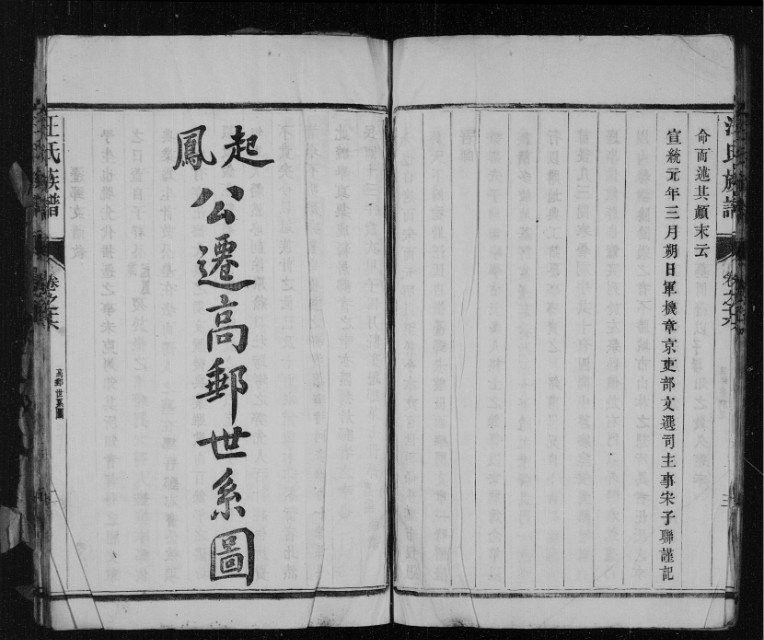 命而述其顛末云
宣統元年三月朔日軍機章京吏部文選司主事宋子聯謹記
汪氏族譜
卷之六
三
起鳳公遷高郵世系圖
汪氏族譜
卷之六
高郵世系圖